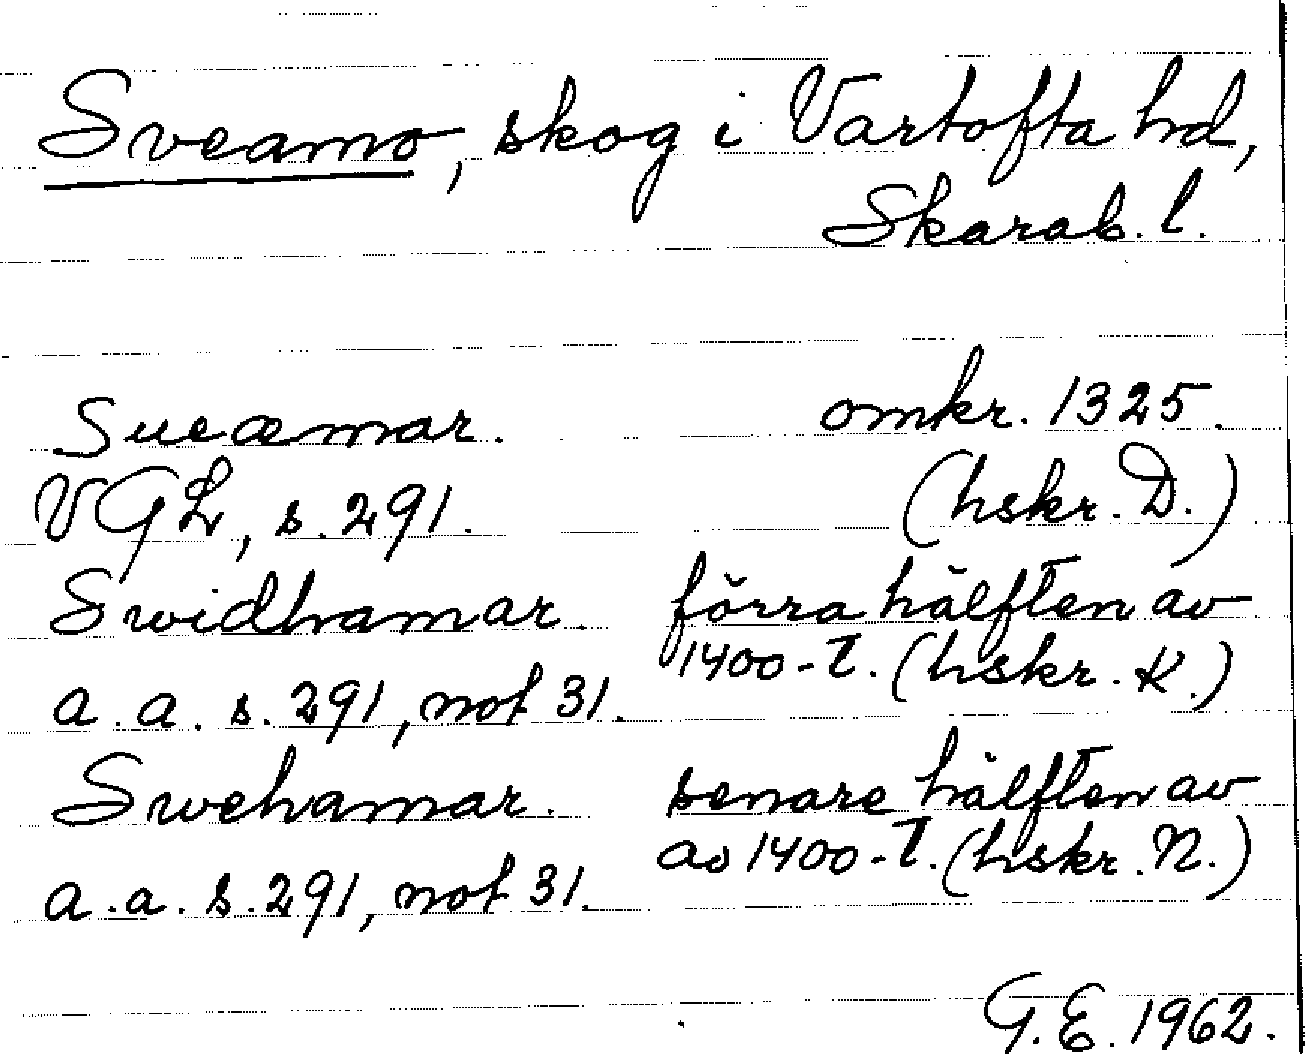 Sveamo, skog i Vartofta hd,
Skarab. l.
Sueæmar. omkr. 1325.
VGL, s. 291. (hskr. D.)
Swidhamar. förra hälften av
1400-t. (hskr. K.)
a. a. s. 291, not 31.
Swehamar. senare hälften av
av 1400-t. (hskr. N.)
a. a. s. 291, not 31.
G. E. 1962.